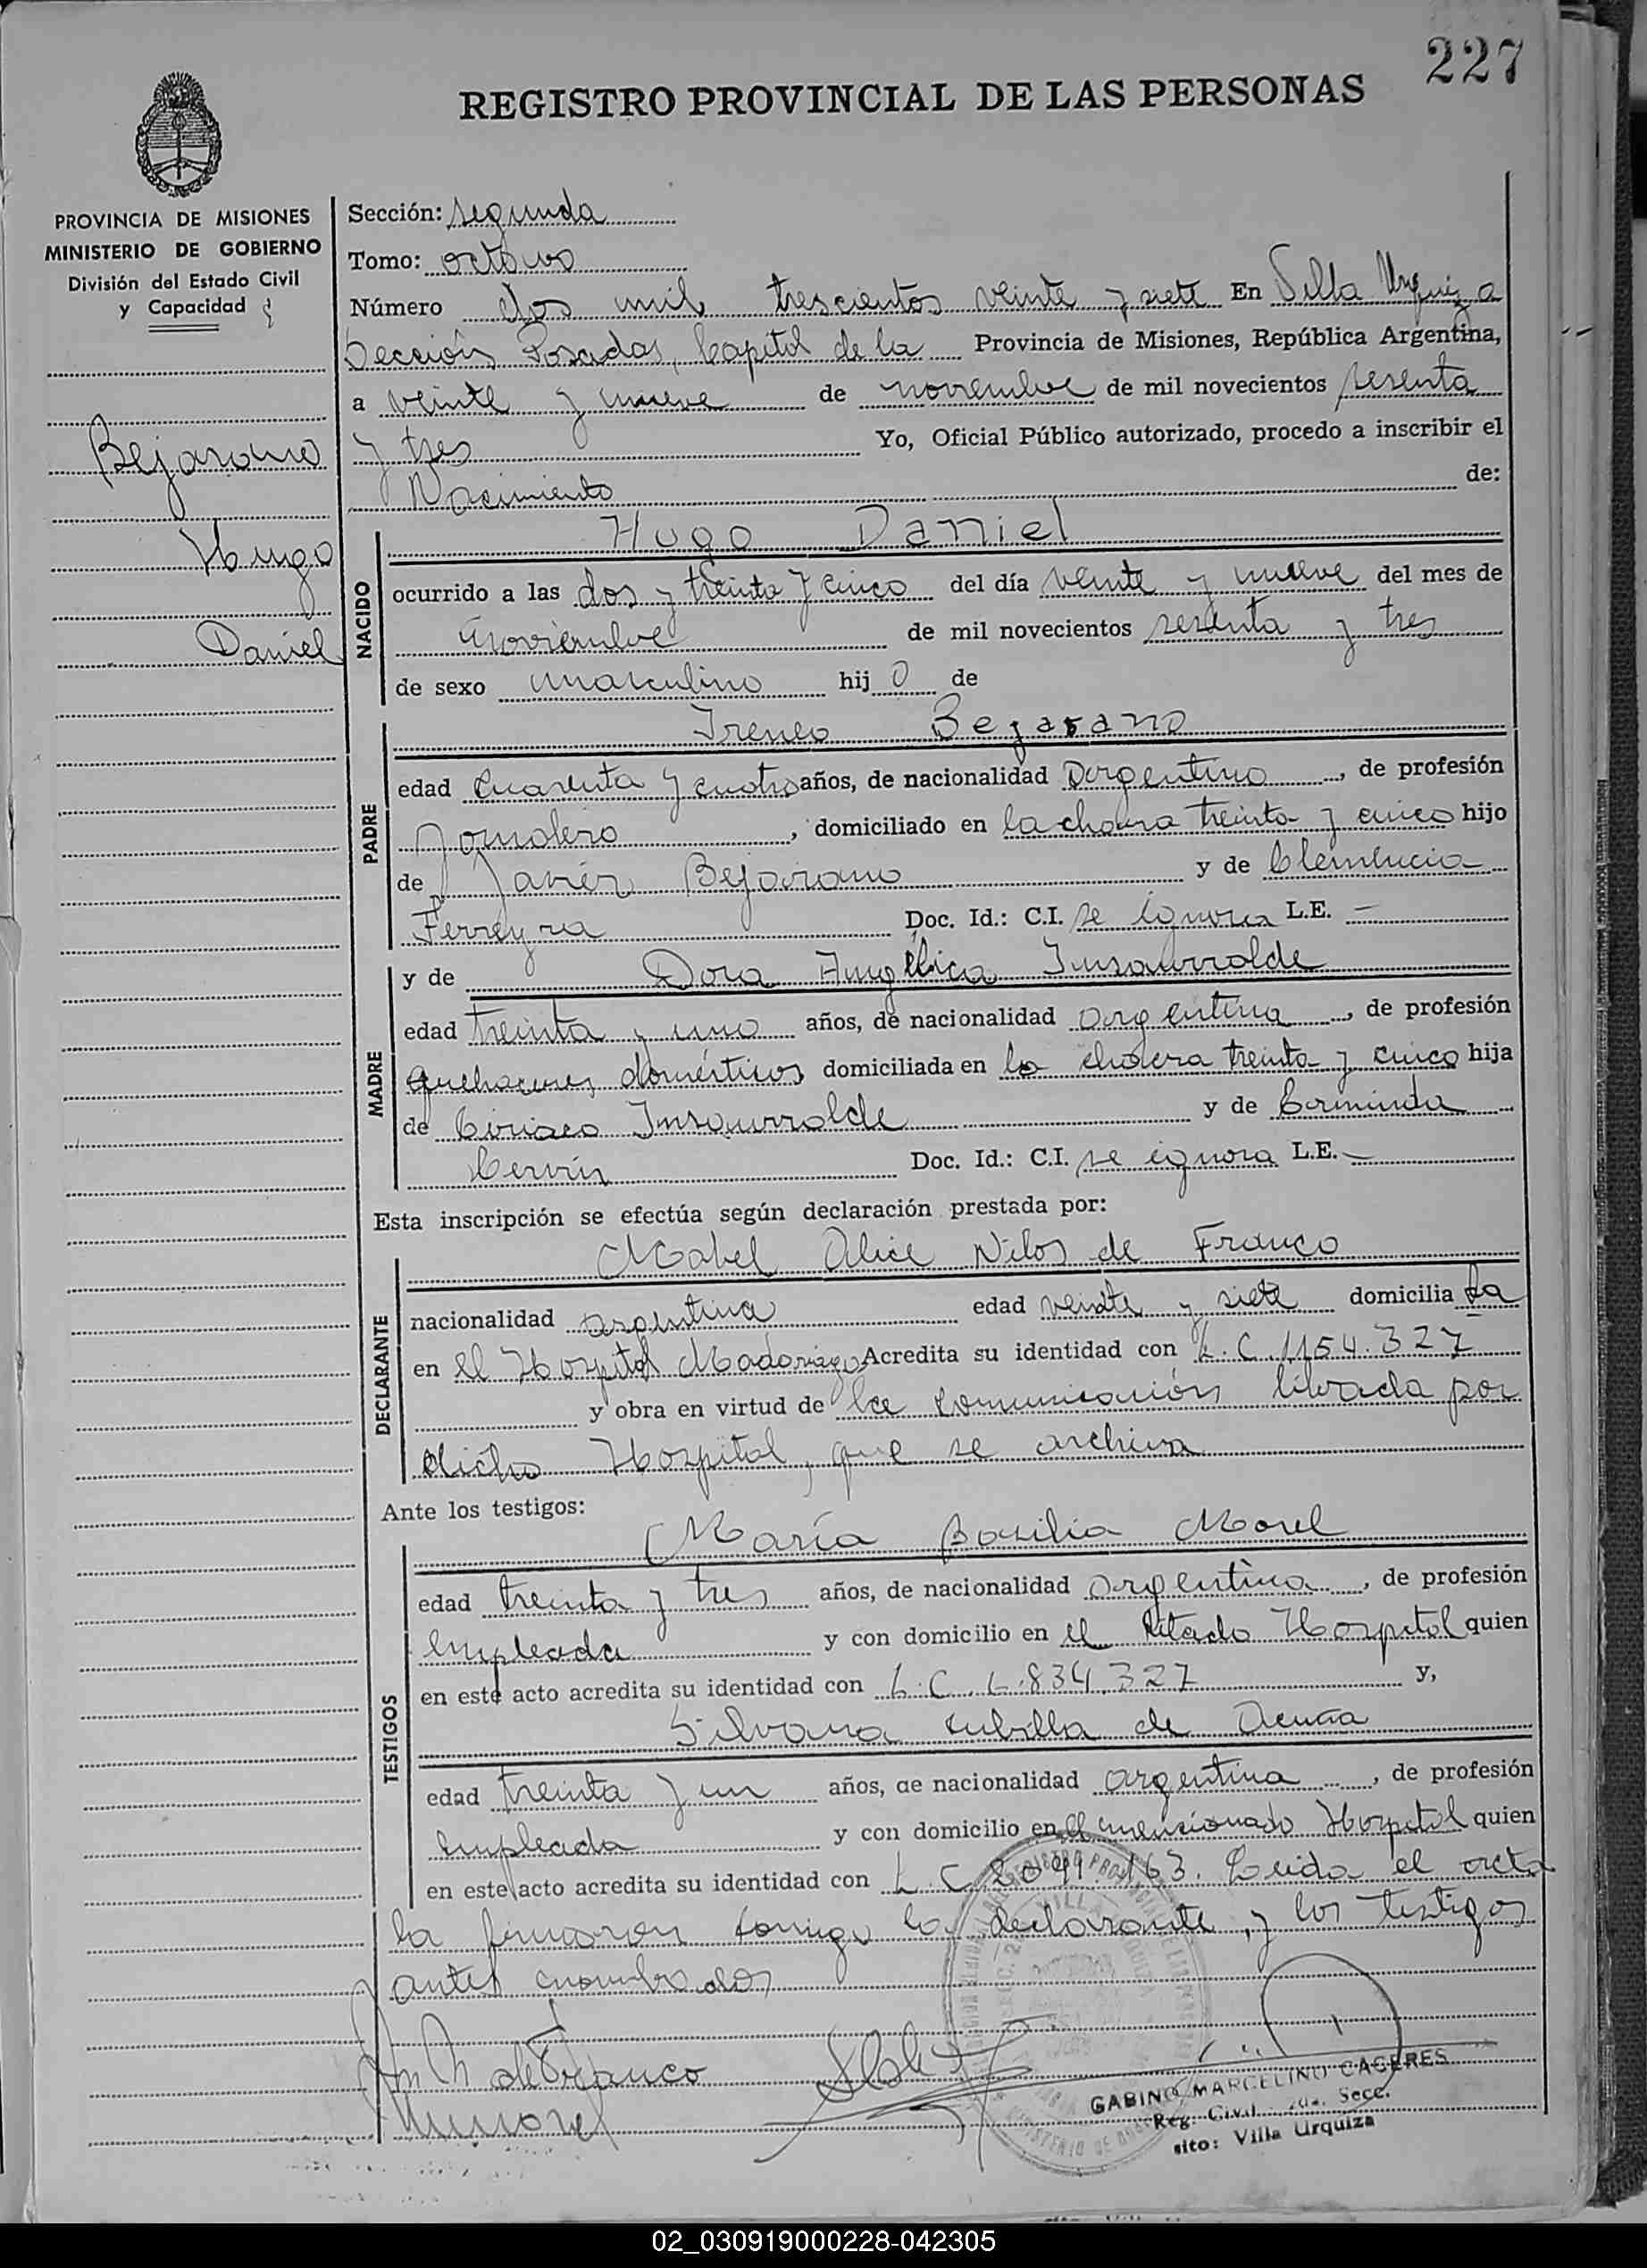 227
REGISTRO PROVINCIAL DE LAS PERSONAS
PROVINCIA DE MISIONES
MINISTERIO DE GOBIERNO
División del Estado Civil
y Capacidad
Bejarano
Hugo
Daniel
Sección: segunda
Tomo: octavo
Número dos mil trescientos veinte y siete En Villa Urquiza
Sección Posadas, Capital de la Provincia de Misiones, República Argentina,
a veinte y nueve de noviembre de mil novecientos sesenta
y tres Yo, Oficial Público autorizado, procedo a inscribir el
Nacimiento de:
NACIDO
Hugo Daniel
ocurrido a las dos y treinta y cinco del día veinte y nueve del mes de
noviembre de mil novecientos sesenta y tres
de sexo masculino hijo de
PADRE
Ireneo Bejarano
edad cuarenta y cuatro años, de nacionalidad argentino, de profesión
Jornalero, domiciliado en la chacra treinta y cinco hijo
de Javier Bejarano y de
Ferreyra Doc. Id.: C.I. se ignora L.E. —
MADRE
y de Dora Angélica Insaurralde
edad treinta y uno años, de nacionalidad argentina, de profesión
quehaceres domésticos domiciliada en la chacra treinta y cinco hija
de Ciriaco Insaurralde y de
Doc. Id.: C.I. se ignora L.E. —
Esta inscripción se efectúa según declaración prestada por:
DECLARANTE
Mabel Alice de Franco
nacionalidad argentina edad veinte y siete domiciliada
en el Hospital Madariaga Acredita su identidad con L.C. 1.154.327
y obra en virtud de la comunicación librada por
dicho Hospital, que se archiva
Ante los testigos:
TESTIGOS
María Basilia Morel
edad treinta y tres años, de nacionalidad argentina, de profesión
empleada y con domicilio en el citado Hospital quien
en este acto acredita su identidad con L.C. 834.327 y,
Silvana de Acuña
edad treinta y un años, de nacionalidad argentina, de profesión
empleada y con domicilio en el mencionado Hospital quien
en este acto acredita su identidad con L.C. 163. Leida el acta
la firmaron conmigo la declarante, y los testigos
antes nombrados
de Franco
GABINO MARCELINO CACERES
Reg. Civil 2da. Secc.
sito: Villa Urquiza
02_030919000228-042305